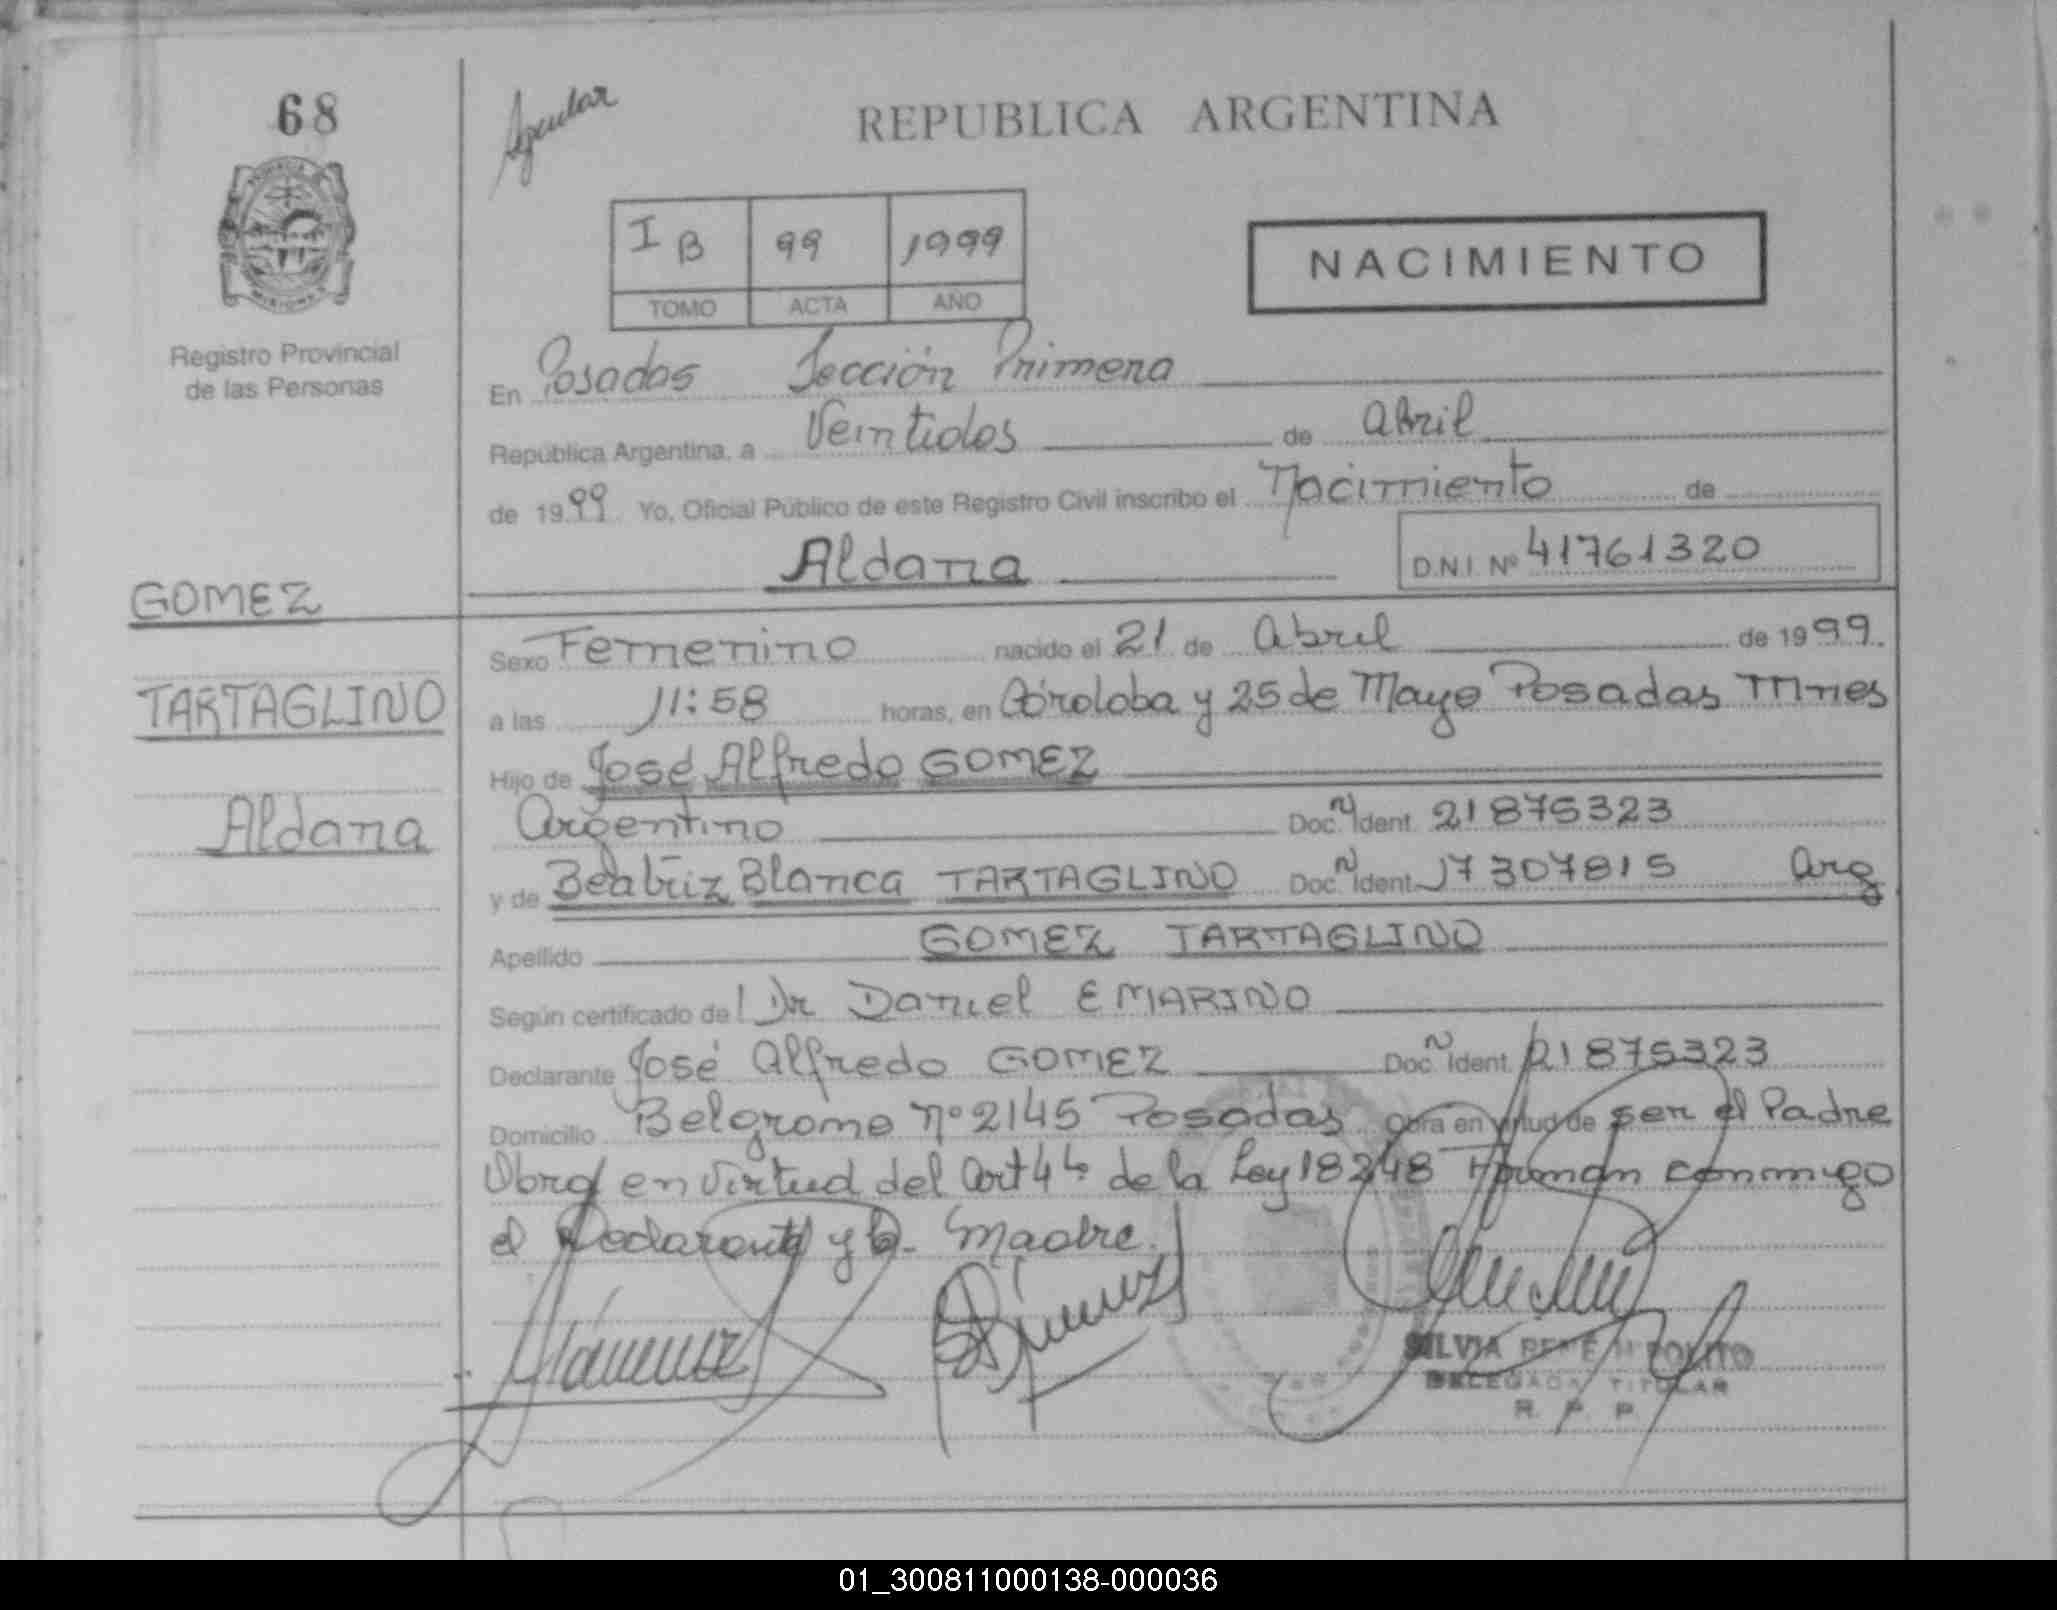 68
REPUBLICA ARGENTINA
I B 99 1999
TOMO ACTA AÑO
NACIMIENTO
Registro Provincial
de las Personas
En Posadas Sección Primera
República Argentina, a Veintidos de Abril
de 1999 Yo, Oficial Público de este Registro Civil inscribo el Nacimiento de
Aldana D.N.I. Nº 41761320
GOMEZ
TARTAGLINO
Aldana
Sexo Femenino nacido el 21 de Abril de 1999.
a las 11:58 horas, en Córdoba y 25 de Mayo Posadas Mnes
Hijo de José Alfredo GOMEZ
Argentino Doc. N Ident. 21875323
y de Beatriz Blanca TARTAGLINO Doc. N Ident. 17307815 Arg
Apellido GOMEZ TARTAGLINO
Según certificado del Dr Daniel E MARINO
Declarante José Alfredo GOMEZ Doc. N Ident. 21875323
Domicilio Belgrano nº 2145 Posadas Obra en virtud de ser el Padre
Obra en virtud del Art 4º de la Ley 18248 Firman conmigo
el Declarante y la Madre.
SILVIA
DELEGADA TITULAR
R. P. P.
01_300811000138-000036